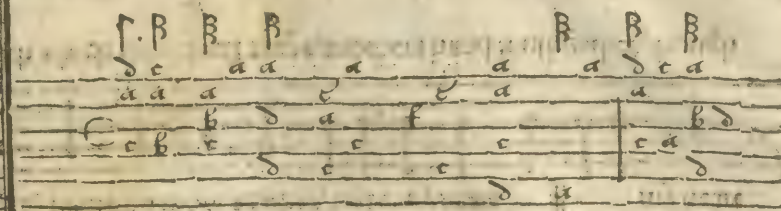 d c a a a a a d c a
a a a c c a a
b d a f b d
c b c c c c a
d c c d
d a